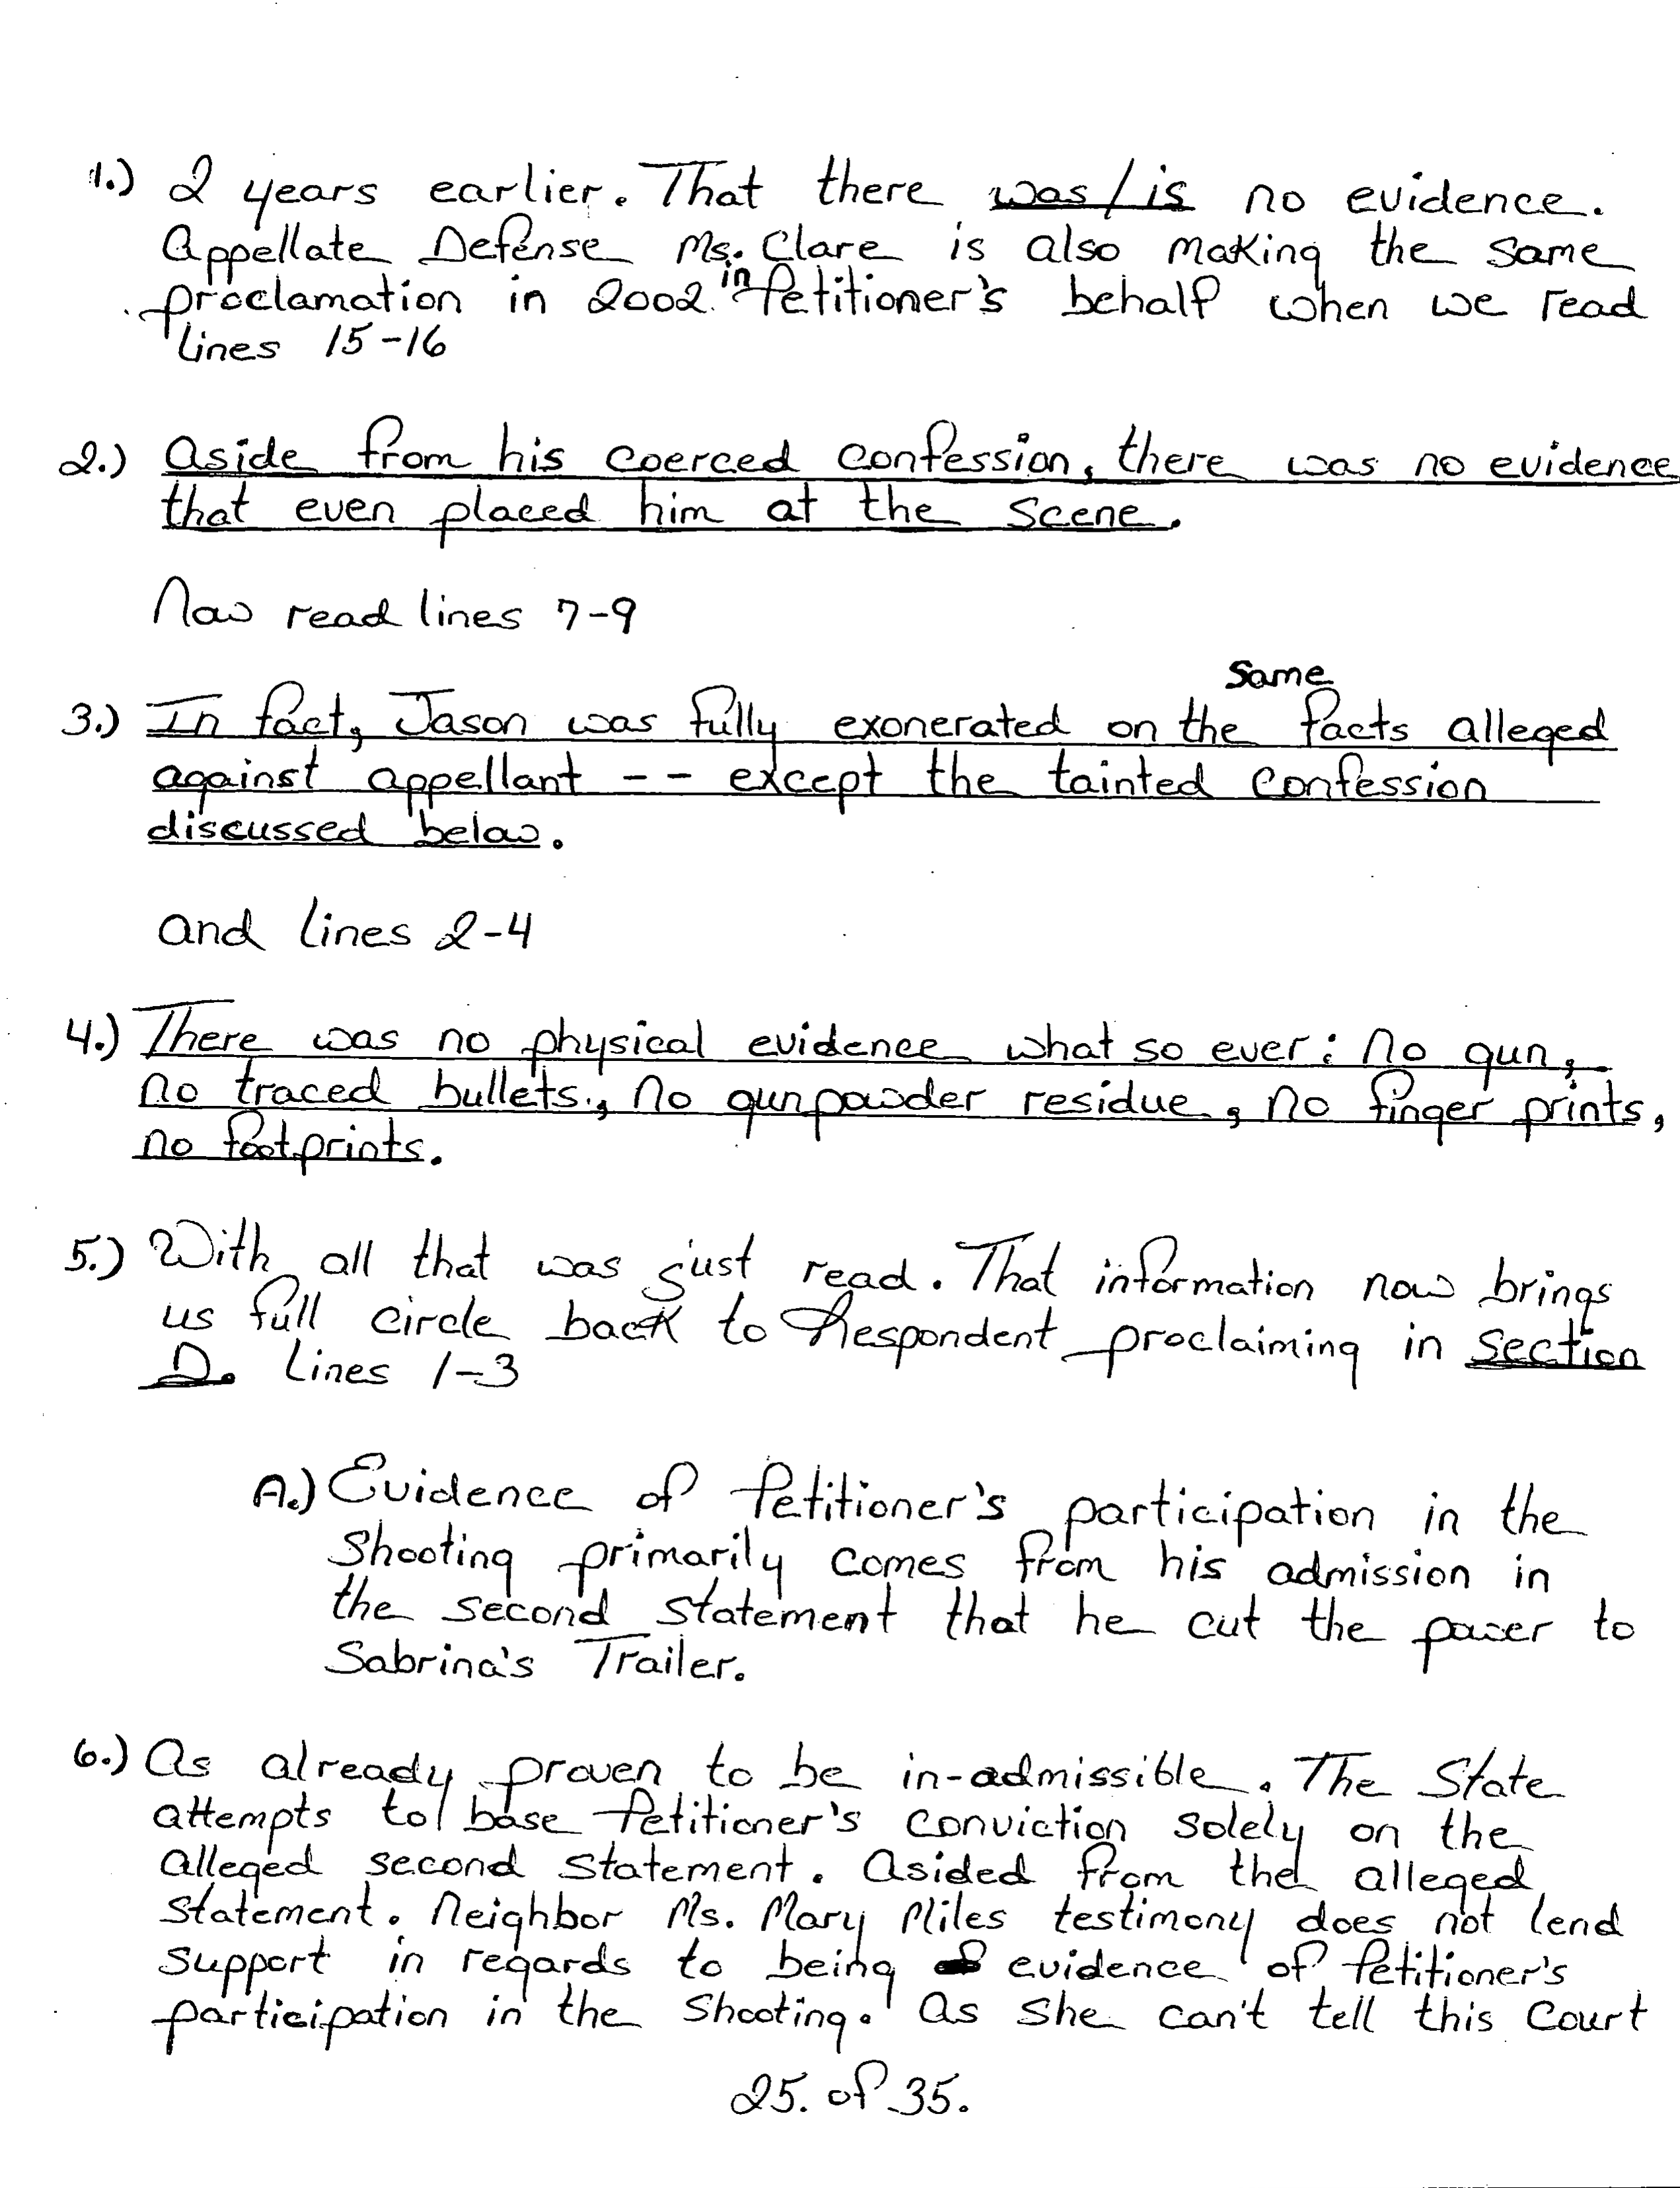 1.) 2 years earlier. That there was/is no evidence.
Appellate Defense Ms. Clare is also making the same
proclamation in 2002. in Petitioner's behalf when we read
lines 15-16
2.) Aside from his coerced confession, there was no evidence
that even placed him at the scene.
Now read lines 7-9
3.) In fact, Jason was fully exonerated on the same facts alleged
against appellant -- except the tainted confession
discussed below.
and lines 2-4
4.) There was no physical evidence what so ever: no gun,
no traced bullets, no gunpowder residue, no finger prints,
no footprints.
5.) With all that was just read. That information now brings
us full circle back to Respondent proclaiming in section
D. lines 1-3
A.) Evidence of Petitioner's participation in the
Shooting primarily comes from his admission in
the second statement that he cut the power to
Sabrina's Trailer.
6.) As already proven to be in-admissible. The State
attempts to base Petitioner's conviction solely on the
alleged second statement. Asided from the alleged
statement. Neighbor Ms. Mary Miles testimony does not lend
support in regards to being evidence of Petitioner's
participation in the Shooting. As she can't tell this Court
25. of 35.